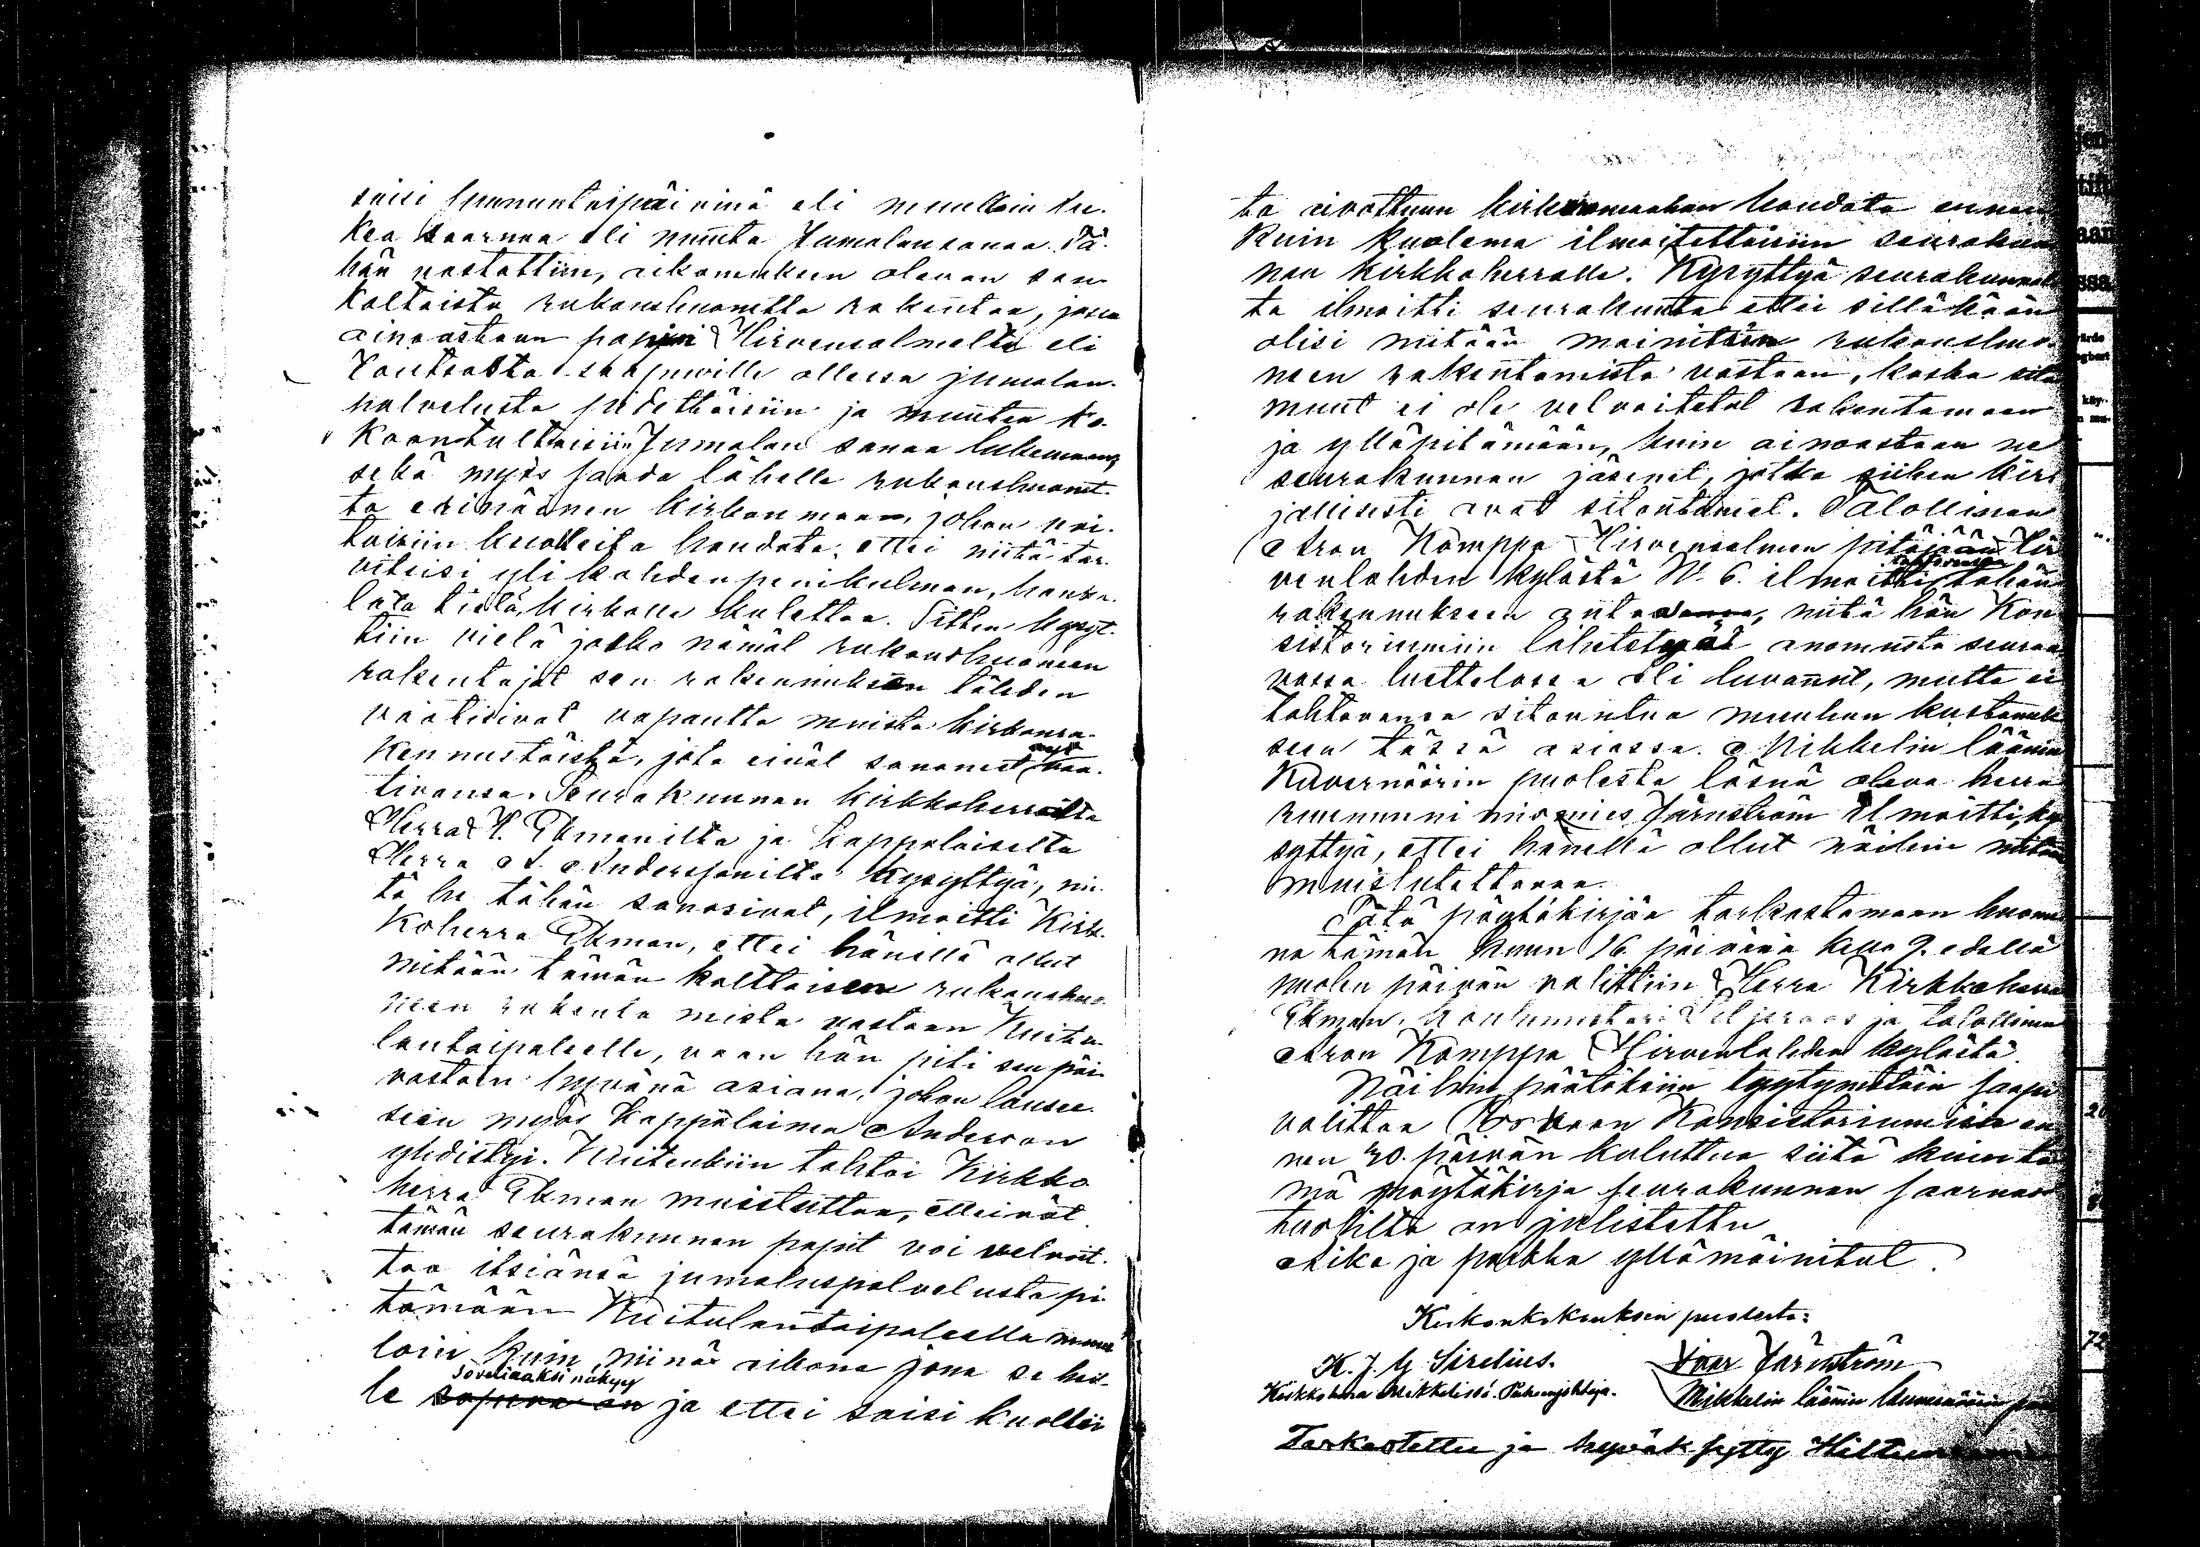 saisi sunnuntaipäivinä eli muulloin lu-
kea saarnaa eli muuta Jumalansanaa. Tä-
hän vastattiin, aikomuksen olevan sen
kaltaista rukoushuonetta rakentaa, jossa
ainoastaan pappin Hirvensalmelta eli
saapuville ollessa jumalan-
palvelusta pidettäisiin ja muuten ko-
koontultaisiin Jumalan sanaa lukemaan,
sekä myös saada lähelle rukoushuonet-
ta erinäinen kirkonmaan, johon voi-
taisiin kuolleita haudata, ettei niitä tar-
vitsisi yli kahden penikulman, hanka-
lata tietä, kirkolle kulettaa. Sitten kysyt-
tiin vielä josko nämät rukoushuoneen
rakentajat sen rakennuksen tähden
vaatisivat vapautta muista kirkonra-
kennustöistä, jota eivät sanoneet nyt vaa-
tivansa. Seurakunnan kirkkoherralta
Herra V. Ekmanilta ja kappalaiselta
Herra A. Anderssonilta kysyttyä, mi-
tä he tähän sanosivat, ilmoitti Kirk-
koherra Ekman, ettei hänellä ollut
mitään tämän kalttaisen rukoushuo-
neen rakentamista vastaan Kuitu-
lantaipaleelle, vaan hän piti sen päin
vastoin hyvänä asiana, johon lausee-
seen myös Kappalaine Andersson
yhdistyi. Kuitenkin tahtoi Kirkko
herra Ekman muistuttaa, etteivät
tämän seurakunnan papit voi velvoit-
taa itsiänsä jumaluspalvelusta pi-
tämään Kuitulantaipaleella muul-
loin kuin niinä aikona jona se heil-
le sopiva on soveliaaksi näkyy ja ettei saisi kuolleit
ta aivottuun kirkonmaahan haudata ennen
kuin kuolema ilmoitettaisiin seurakun
nan kirkkoherralle. Kysyttyä seurakunnal
ta ilmoitti seurakunta ettei silläkään
olisi mitään mainittua rukoushuo-
neen rakentamista vastaan, koska sitä
muut ei ole velvoitetut rakentamaan
ja ylläpitämään, kuin ainoastaan ne
seurakunnan jäsenet, jotka siihen kirj
jallisesti ovat sitountuneet. Talollinen
Aron Kömppa Hirvensalmen pitäjään Hir
venlahden kylästä N. 6. ilmoitti tahtovansa tähän
rakennukseen antaa, mitä hän Kon
sistoriumiin lähetetyssä anomusta seuraa
vassa luettelossa oli luvannut, mutta ei
tahtovansa sitountua muuhun kustannuk
seen tässä asiassa. Mikkelin läänin
Kuvernöörin puolesta läsnä oleva herra
kruununnimismies Järnström ilmoitti, ky
syttyä, ettei hänellä ollut näihin mitään
muistutettavaa.
Tätä pöytäkirjaa tarkastamaan huomen
na tämän kuun 16. päivänä kello 9. edellä
puolen päivän valittiin Herra Kirkkoherra
Ekman, ja talollinen
Aron Kömppa Hirvenlahden kylästä.
Näihin päätöksiin tyytymätöin saapi
valittaa Porvoon Konsistoriumiin en
nen 30. päivän kuluttua siitä kuin tä
mä pöytäkirja seurakunnan saarnas
tuolilta on julistettu
Aika ja paikka yllämainitut.
Kirkonkokouksen puolesta:
K. J. G. Sirelius. Ivar Järnström
Kirkkoherra Mikkelissä. Puheenjohtaja. Mikkelin läänin kuvernöörin puo
Tarkastettu ja hyväksytty